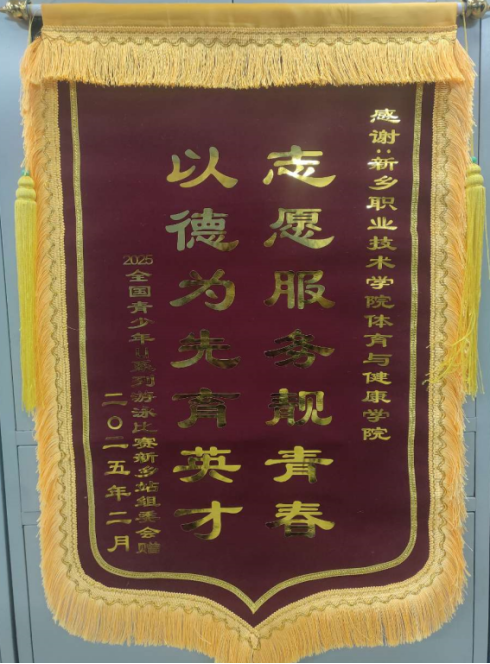 感谢:新乡职业技术学院体育与健康学院
志愿服务靓青春
以德为先育英才
2025全国青少年U系列游泳比赛新乡站组委会赠
二〇二五年二月